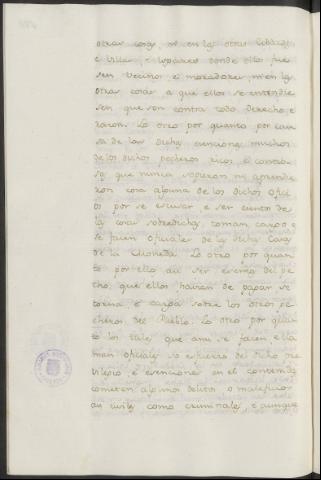 otras cosas, ni en las otras cibdades
e villas, e lugares donde ellos fue
sen vecinos e moradores, ni en las
otras cosas a que ellos se entendie
sen que son contra todo derecho, e
razon. Lo otro por quanto por cau
sa de las dichas esenciones muchos
de los dichos pecheros ricos, e contado
sos que nunca sopieron ni aprendie
ron cosa alguna de los dichos Ofici
os por se escusar e ser esentos de
las cosas sobredichas, toman cargo e
se facen oficiales de las dichas Casas
de la Moneda. Lo otro por quan
to por ello asi ser esentos del pe
cho, que ellos habian de pagar se
torna, e carga sobre los otros pe
cheros del Pueblo. Lo otro por quan
to los tales que ansi se facen, e lla
man oficiales so esfuerzo del dicho pre
vilegio, e esenciones en el contenidas
cometen algunos delitos, o maleficios
asi civiles como criminales, e aunque